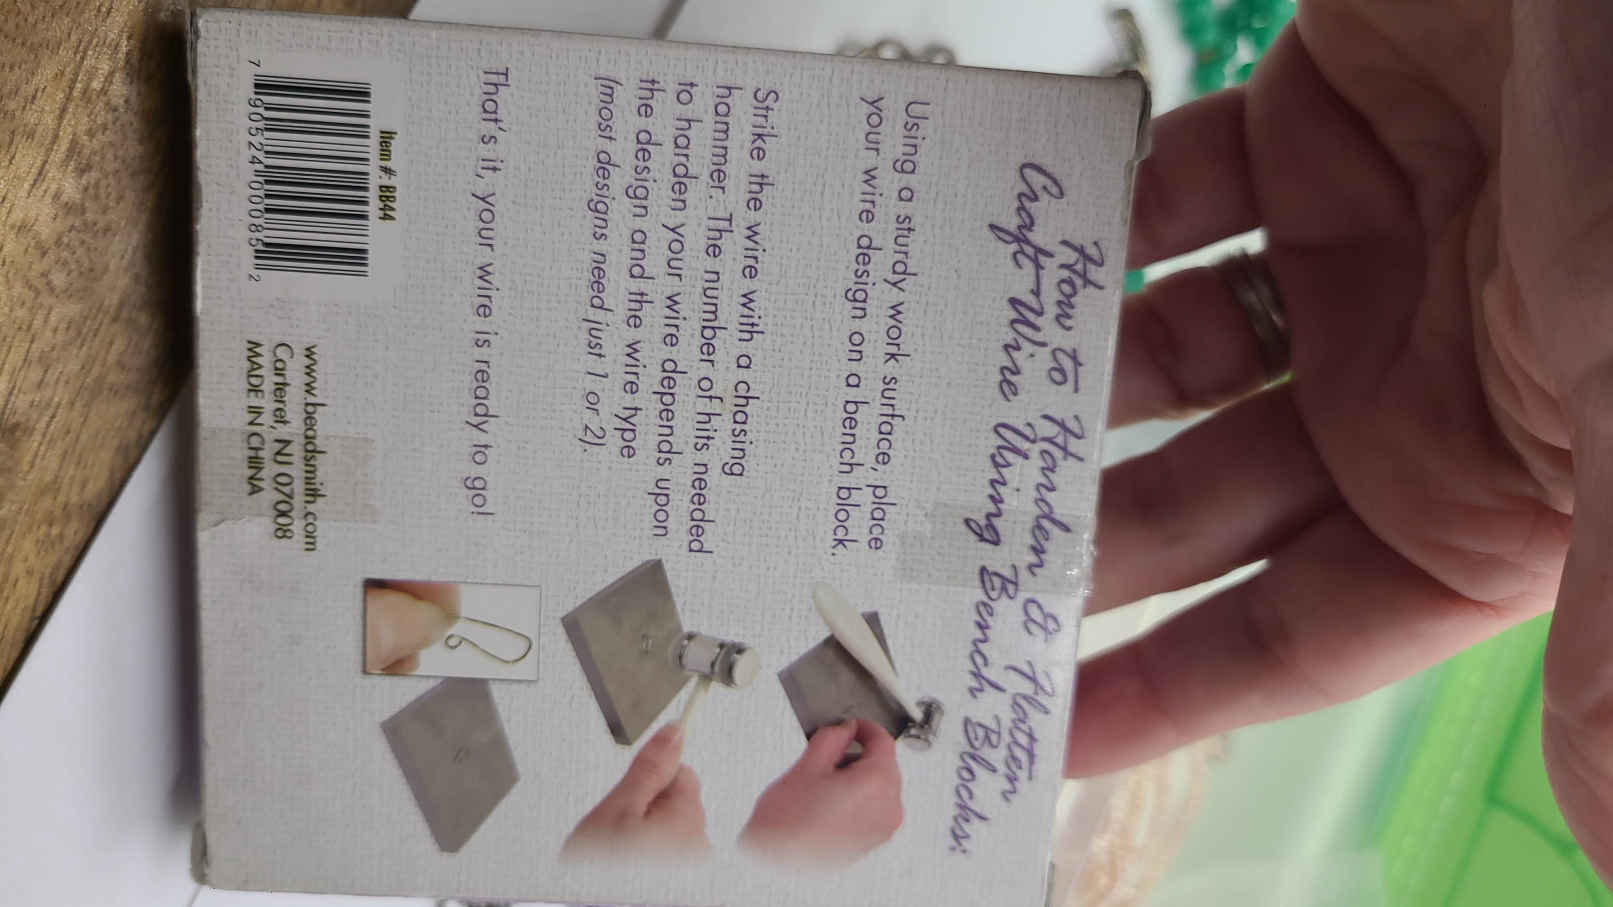 How to Harden & Flatten
Craft Wire Using Bench Blocks:
Using a sturdy work surface, place
your wire design on a bench block.
Strike the wire with a chasing
hammer. The number of hits needed
to harden your wire depends upon
the design and the wire type
(most designs need just 1 or 2).
That's it, your wire is ready to go!
Item #: BB44
7 90524 00085 2
www.beadsmith.com
Carteret, NJ 07008
MADE IN CHINA